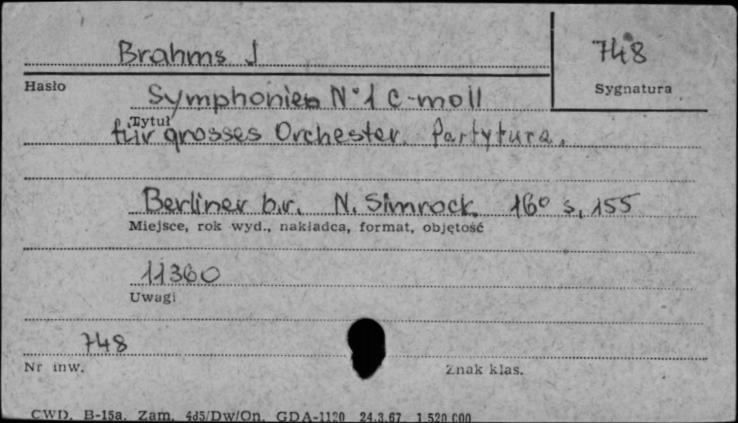 Brahms J
748
Hasło
Sygnatura
Symphonien N° 1 c-moll
Tytuł
für grosses Orchester. Partytura.
Berliner b.r. N. Simrock. 16° s, 155
Miejsce, rok wyd., nakładca, format, objętość
11360
Uwagi
748
Nr inw.
Znak klas.
CWD. B-15a. Zam. 4d5/Dw/On. GDA-1120 24.3.67 1 520 000